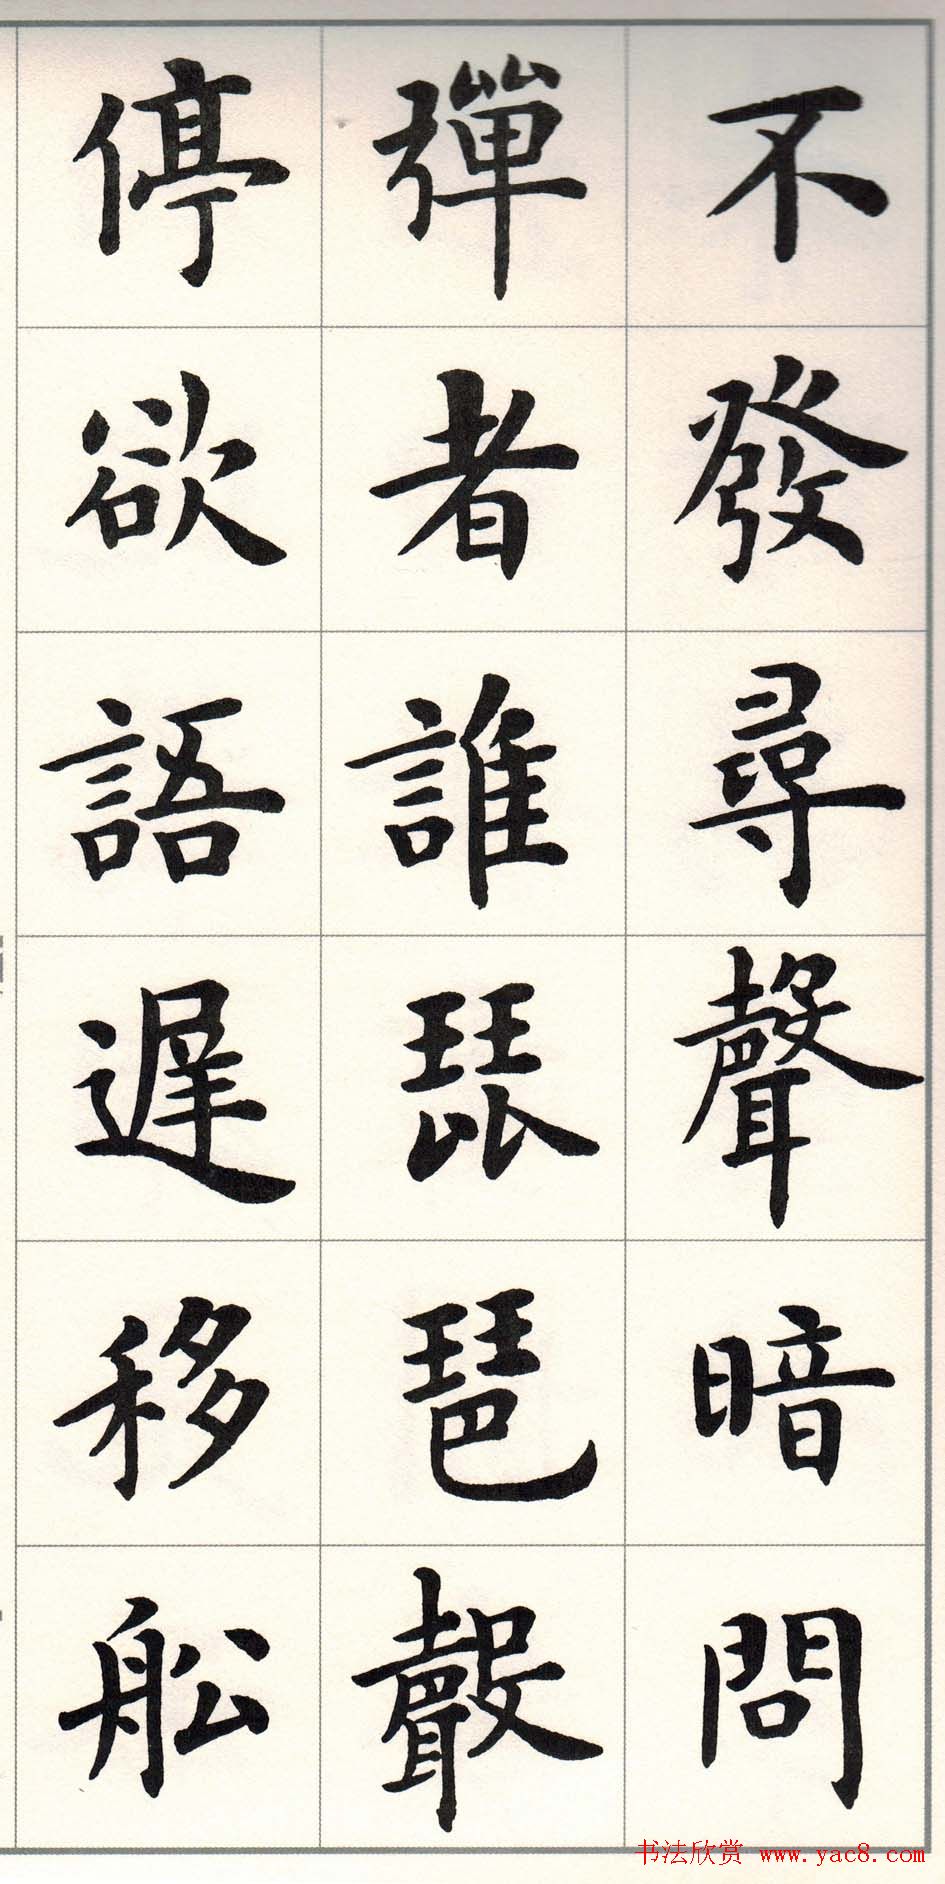 不發尋聲暗問
彈者誰琵琶聲
停欲語遲移舩
书法欣赏 www.yac8.com